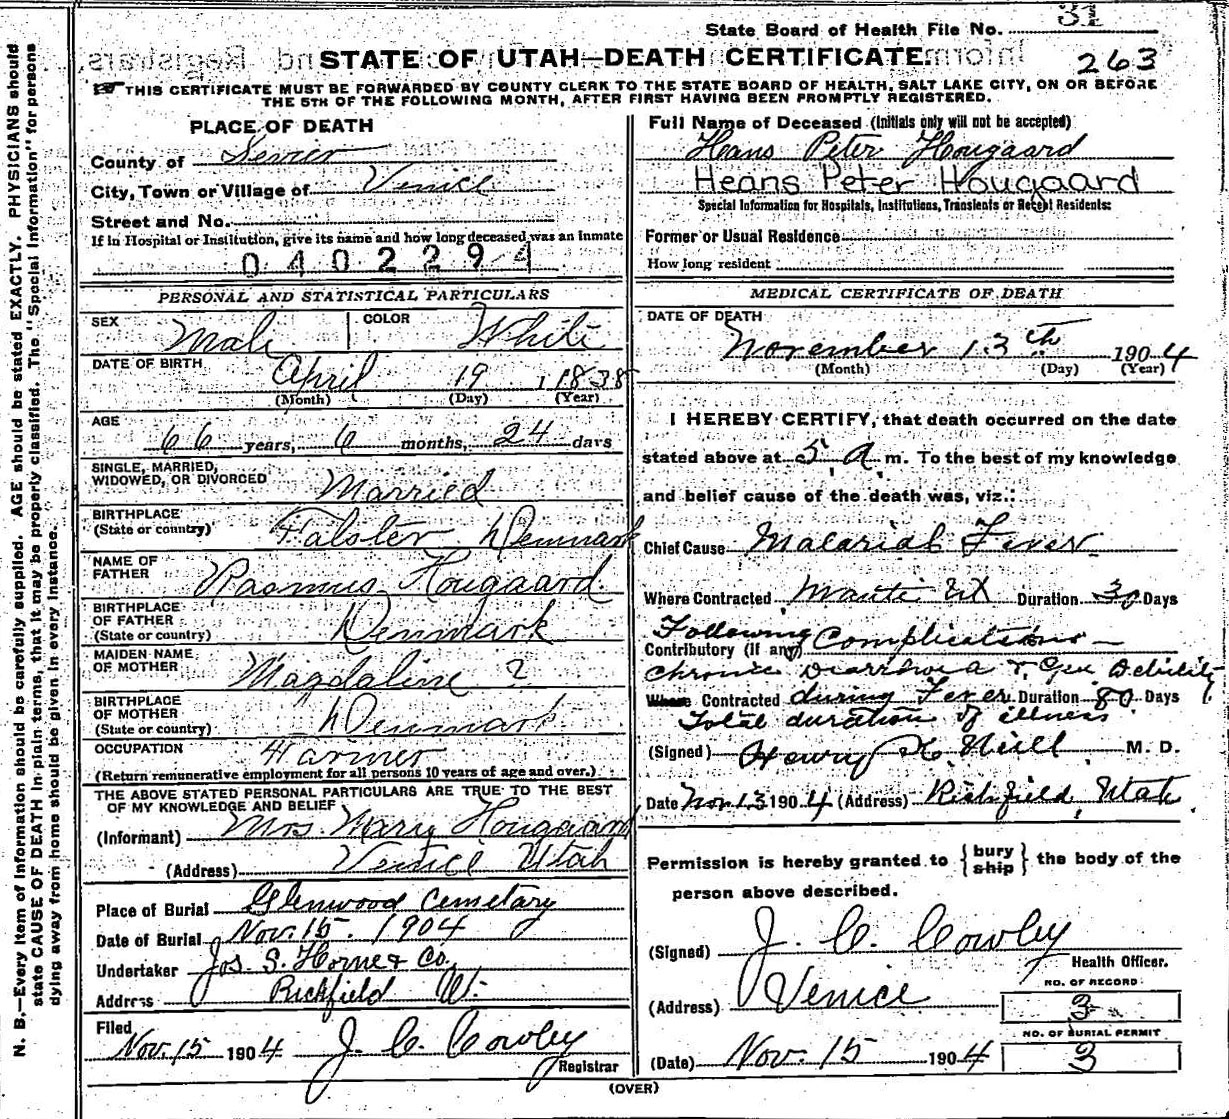 State Board of Health File No. 31
STATE OF UTAH—DEATH CERTIFICATE. 263
THIS CERTIFICATE MUST BE FORWARDED BY COUNTY CLERK TO THE STATE BOARD OF HEALTH, SALT LAKE CITY, ON OR BEFORE
THE 5TH OF THE FOLLOWING MONTH, AFTER FIRST HAVING BEEN PROMPTLY REGISTERED.
N. B.—Every item of information should be carefully supplied. AGE should be stated EXACTLY. PHYSICIANS should
state CAUSE OF DEATH in plain terms, that it may be properly classified. The "Special Information" for persons
dying away from home should be given in every instance.
PLACE OF DEATH
County of Sevier
City, Town or Village of Venice
Street and No.
If in Hospital or Institution, give its name and how long deceased was an inmate
0402294
PERSONAL AND STATISTICAL PARTICULARS
SEX Male COLOR White
DATE OF BIRTH April 19 1838
(Month) (Day) (Year)
AGE
66 years, 6 months, 24 days
SINGLE, MARRIED,
WIDOWED, OR DIVORCED Married
BIRTHPLACE
(State or country) Falster Denmark
NAME OF
FATHER Rasmus Hougaard
BIRTHPLACE
OF FATHER
(State or country) Denmark
MAIDEN NAME
OF MOTHER Magdaline ?
BIRTHPLACE
OF MOTHER
(State or country) Denmark
OCCUPATION Farmer
(Return remunerative employment for all persons 10 years of age and over.)
THE ABOVE STATED PERSONAL PARTICULARS ARE TRUE TO THE BEST
OF MY KNOWLEDGE AND BELIEF
(Informant) Mrs. Mary Hougaard
(Address) Venice Utah
Place of Burial Glenwood Cemetary
Date of Burial Nov. 15. 1904
Undertaker Jos. S. Horne & Co.
Address Richfield Ut.
Filed
Nov. 15 1904 J. C. Cowley
Registrar
Full Name of Deceased (Initials only will not be accepted)
Hans Peter Hougaard
Heans Peter Hougaard
Special Information for Hospitals, Institutions, Transients or Recent Residents:
Former or Usual Residence
How long resident
MEDICAL CERTIFICATE OF DEATH
DATE OF DEATH
November 13th 1904
(Month) (Day) (Year)
I HEREBY CERTIFY, that death occurred on the date
stated above at 5 A. m. To the best of my knowledge
and belief cause of the death was, viz.:
Chief Cause Malarial Fever
Where Contracted Manti Ut Duration 30 Days
Following Complications
Contributory (if any)
Chronic Diarrhoea & Gen Debility
Where Contracted during Fever. Duration 80 Days
Total duration of illness
(Signed) Henry K. Neill M. D.
Date Nov. 13 1904 (Address) Richfield, Utah
Permission is hereby granted to {bury ship} the body of the
person above described.
(Signed) J. C. Cowley
Health Officer.
(Address) Venice
NO. OF RECORD
3
NO. OF BURIAL PERMIT
3
(Date) Nov. 15 1904
(OVER)